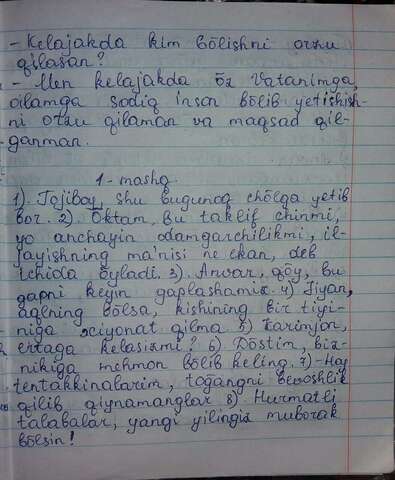 - Kelajakda kim bōlishni orzu
qilasan?
- Men kelajakda ōz Vatanimga,
oilamga sodiq inson bōlib yetishish-
ni orzu qilaman va maqsad qil-
ganman.
1-mashq.
1). Tojiboy, shu bugunoq chōlga yetib
bor. 2). Ōktam, bu taklif chinmi,
yo anchayin odamgarchilikmi, il-
jayishning ma'nisi ne ekan, deb
ichida ōyladi. 3). Anvar, qōy, bu
gapni keyin gaplashamiz. 4). Jiyan,
aqlning bōlsa, kishining bir tiyi-
niga xiyonat qilma 5) Karimjon,
ertaga kelasizmi? 6) Dōstim, biz-
nikiga mehmon bōlib keling. 7) - Hay
tentakkinalarim, toğangni bevoshlik
qilib qiynamanglar 8). Hurmatli
talabalar, yangi yilingiz muborak
bōlsin!